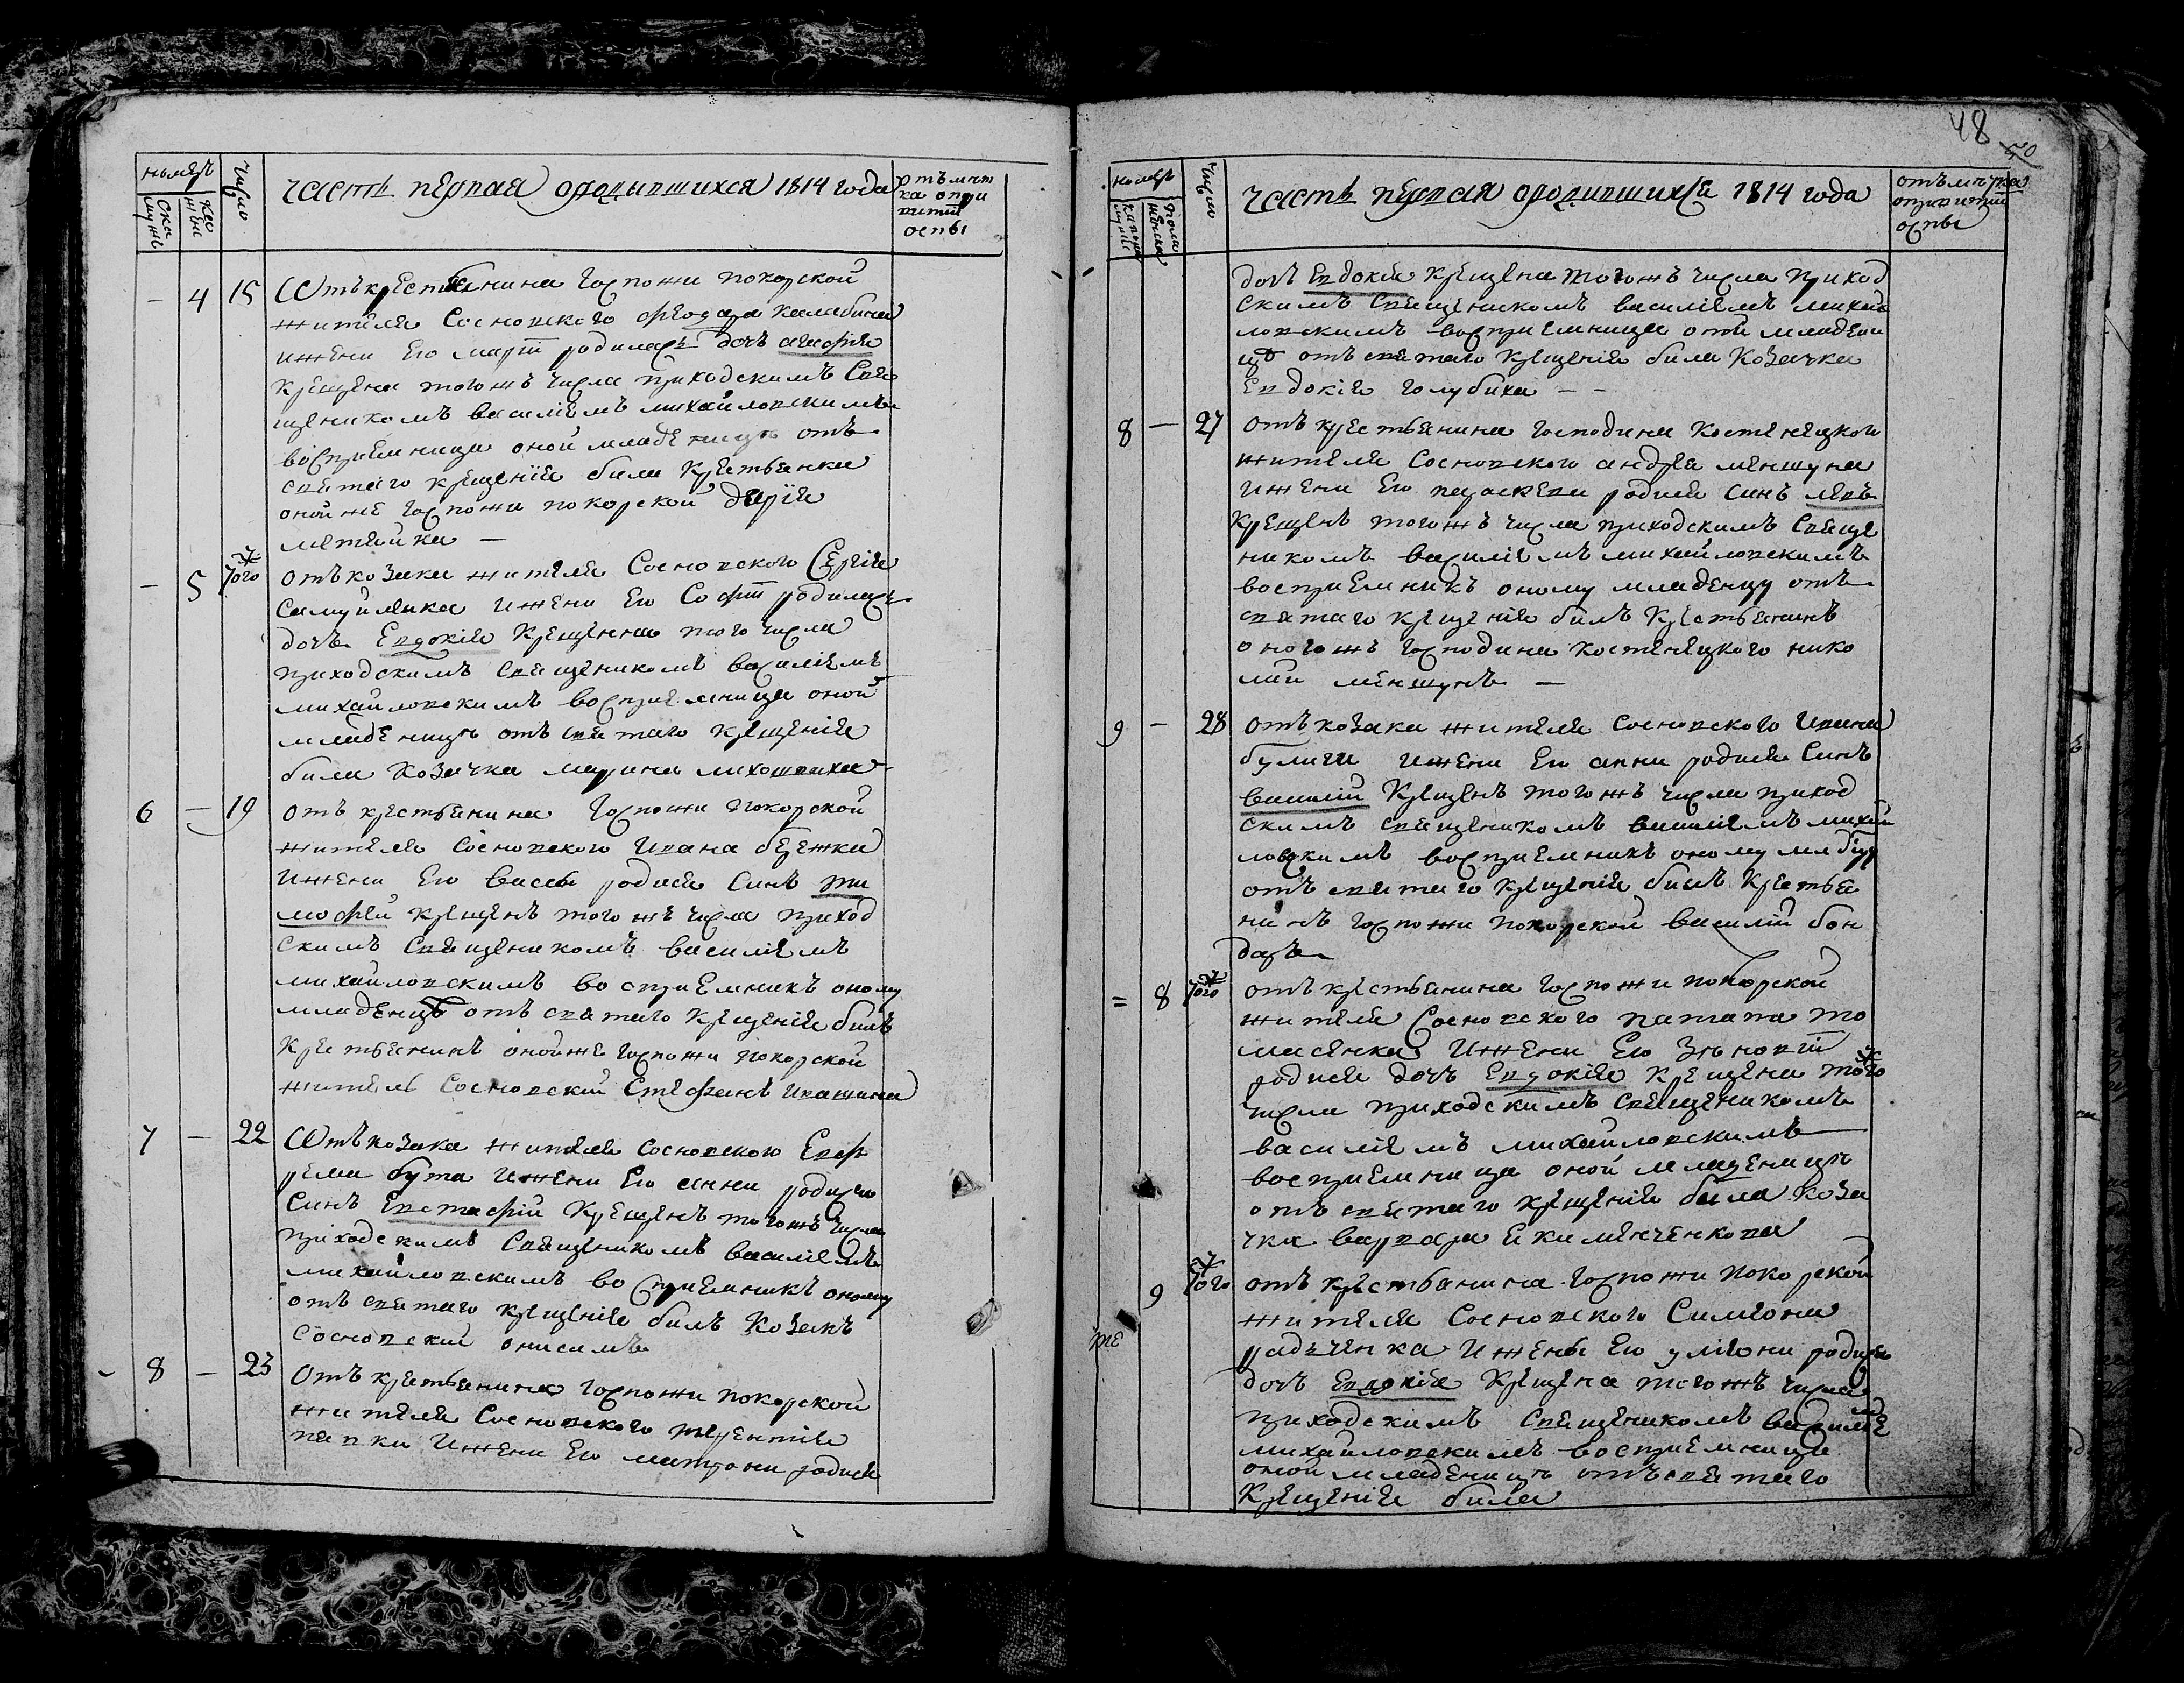 номеръ
число
часть первая о родившихся 1814 года
отъмет
ка опри
витїи
оспы
муже
ска
жен
ско
– 4 15 Отъ крестьянина госпожи покорской
жителя Сосновского феодора калабина
и жени его марїи родилась дочь агафия
крещена того жъ числа приходскимъ свя
щеникомъ василіемъ михайловскимъ
восприемница оной младеницъ отъ
святаго крещенія била крестьянка
оной же госпожи покорской дарїя
– 5 того ж отъ козака жителя Сосновского Сергія
Самуйлика и жени его Софїи родилась
дочь Евдокія крещенна того числа
приходскимъ священикомъ василіемъ
михайловскимъ восприемница оной
младеницъ отъ святаго крещенія
била козачка марина
6 – 19 отъ крестьянина госпожи покорской
жителя Сосновского Ивана бережка
и жени его васси родися синъ ти
мофей крещенъ того жъ числа приход
скимъ священикомъ василіемъ
михайловскимъ восприемникъ оному
младенцъ отъ святаго крещенія билъ
крестьянинъ оной же госпожи покорской
житель Сосновский Стефанъ Ивашина
7 – 22 Отъ козака жителя Сосновского Евф
рема бута и жени его анни родися
синъ Евстафій крещенъ того жъ числа
приходскимъ священикомъ василіемъ
михайловскимъ восприемникъ оному
отъ святаго крещенія билъ козакъ
Сосновский онисимъ
8 – 23 Отъ крестьянина госпожи покорской
жителя Сосновского терентія
павки и жени его матрони родися
48
50
номеръ
число
часть первая о родившихся 1814 года
отъметка
опривитїи
оспы
дочъ Евдокія крещена того жъ числа приход
скимъ священикомъ василіемъ михай
ловскимъ восприемница отой младени
цъ отъ святаго крещенія била козачка
Евдокія голубиха – –
8 – 27 отъ крестьянина господина Костенецкого
жителя Сосновского андрея меншуна
и жени его параскеви родися синъ левъ
крещенъ того жъ числа приходскимъ свяще
никомъ василіемъ михайловскимъ
восприемникъ оному младенцу отъ
святаго крещенія билъ крестьянинъ
оного жъ господина костенецкого нико
лай меншунъ –
9 – 28 отъ козака жителя Сосновского Ивана
булиги и жени его анни родися синъ
василій крещенъ того жъ числа приход
скимъ священикомъ василіемъ михай
ловскимъ восприемникъ оному млдцу
отъ святаго крещенія билъ крестья
нинъ госпожи покорской василій бон
даръ
= 8 того ж отъ крестьянина госпожи покорской
жителя Сосновского патапа то
масенка и жени его Зѣновїи
родися дочъ Евдокія крещена того ж
числа приходскимъ священикомъ
василіемъ михайловскимъ
восприемница оной младеницъ
отъ святаго крещенія била коза
чка варвара Екименчекова
9 того ж отъ крестьянина госпожи покорской
жителя Сосновского Симеона
радченка и жены его уліяни родися
дочъ Евдокія крещена того жъ числа
приходскимъ священикомъ василіе
михайловскимъ восприемница
оной младеницъ отъ святаго
крещенія била